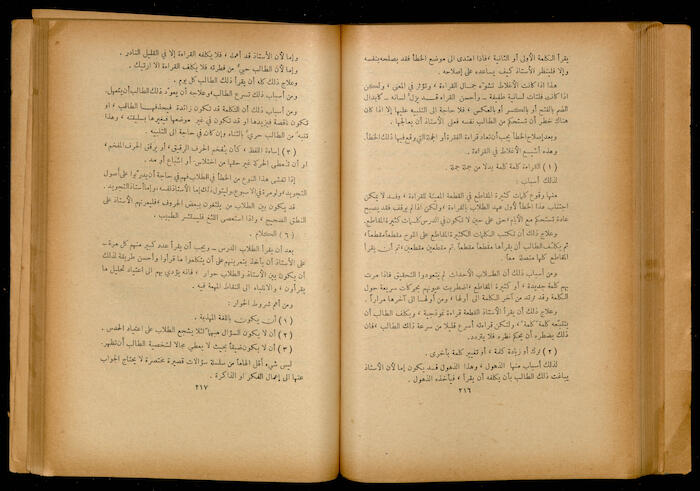 يقرأ الكلمة الأولى أو الثانية ، فاذا اهتدى الى موضع الخطأ فقد يصلحه بنفسه
وإلا فلينتظر الأستاذ كيف يساعده على إصلاحه .
هذا اذا كانت الأغلاط تشوّه جمال القراءة ، وتؤثر في المعنى ، ولكن
اذا كانت فلتات لسانية طفيفة ــ وأحسن القراء قد يزلّ لسانه ــ كابدال
الضم بالفتح أو بالكسر أو بالعكس ، فلا حاجة الى التنبيه عليها إلا اذا كان
هناك خطر أن تستحكم من الطالب نفسه فعلى الأستاذ أن يعالجها .
وبعد إصلاح الخطأ يجب أن تعاد قراءة الفقرة أو الجملة التي وقع فيها ذلك الخطأ.
وهذه أشيع الأغلاط في القراءة .
( ١ ) القراءة كلمة كلمة بدلا من جملة جملة .
لذلك أسباب :
منها وقوع كلمات كثيرة المقاطع في القطعة المعينة للقراءة ، وقد لا يمكن
اجتناب هذا الخطأ لأول عهد الطلاب بالقراءة ، ولكن اذا لم يوقف فقد يصبح
عادة تستحكم مع الأيام حتى على حين لا تكون في الدرس كلمات كثيرة المقاطع.
وعلاج ذلك أن تكتب الكلمات الكثيرة المقاطع على اللوح مقطعاً مقطعاً ،
ثم يكلف الطالب أن يقرأها مقطعاً مقطعاً ثم مقطعين مقطعين ، ثم أن يقرأ
المقاطع كلها متصلة معاً .
ومن أسباب ذلك أن الطلاب الأحداث لم يتعودوا التحقيق فاذا مرت
بهم كلمة جديدة ، أو كثيرة المقاطع ، اضطربت عيونهم بحركات سريعة حول
الكلمة وقد ترتد من آخر الكلمة الى أولها ، ومن أولها الى آخرها مراراً .
وعلاج ذلك أن يقرأ الأستاذ القطعة قراءة نموذجية ، ويكلف الطالب أن
يتتبعه كلمة "كلمة" ، ولتكن قراءته أسرع قليلا من سرعة ذلك الطالب ، فان
ذلك يضطره أن يحكم نظره فلا يتردد .
( ٢ ) ترك أو زيادة كلمة ، أو تغيير كلمة بأخرى .
لذلك أسباب منها الذهول ، وهذا الذهول قد يكون إما لأن الأستاذ
يباغت ذلك الطالب بأن يكلفه أن يقرأ ، فيأخذه الذهول .
٢١٦
وإما لأن الأستاذ قد أهمله ، فلا يكلفه القراءة إلا في القليل النادر .
وإما لأن الطالب حيي من فطرته فلا يكلف القراءة الا ارتبك .
وعلاج ذلك كله أن يقرأ ذلك الطالب كل يوم .
ومن أسباب ذلك تسرع الطالب وعلاجه أن يعوّد ذلك الطالب أن يتمهل .
ومن أسباب ذلك أن الكلمة قد تكون زائدة فيحذفها الطالب ، او
تكون ناقصة فيزيدها او قد تكون في غير موضعها فيغيرها بسليقته ، وهذا
تنبه من الطالب حري بالثناء وإن كان في حاجة الى التنبيه .
( ٣ ) إساءة اللفظ ، كأن يفخم الحرف الرقيق، او يرقق الحرف المفخم،
او أن تُعطى الحركة غير حقها من اختلاس . او اشباع أو مد .
إذا تفشى هذا النوع من الخطأ في الطلاب فهم في حاجة أن يدربوا على أصول
التجويد ولو مرة في الأسبوع وليتول ذلك إما الأستاذ نفسه، وإما أستاذ التجويد.
قد يكون بين الطلاب من يلثغون ببعض الحروف ، فليمرنهم الأستاذ على
النطق الصحيح ، واذا استعصى اللثغ فليستشر الطبيب .
( ٦ ) الكلام .
بعد أن يقرأ الطلاب الدرس ــ ويجب أن يقرأ عدد كبير منهم كل مرة ــ
على الأستاذ أن يأخذ بتمرينهم على أن يتكلموا عما قرأوا وأحسن طريقة لذلك
أن يكون بين الأستاذ والطلاب حوار ، فانه يؤدي بهم الى اعتياد تحليل ما
يقرأون ، والانتباه الى النقاط المهمة فيه .
ومن أهم شروط الحوار :
( ١ ) أن يكون باللغة المهذبة .
( ٢ ) أن لا يكون السؤال مبهما لئلا يشجع الطلاب على اعتياد الحدس .
( ٣ ) أن لا يكون ضيقاً بحيث لا يعطي مجالا لشخصية الطالب أن تظهر.
ليس شيء أقل الهاماً من سلسلة سؤالات قصيرة مختصرة لا يحتاج الجواب
عنها الى إعمال الفكر او الذاكرة .
٢١٧